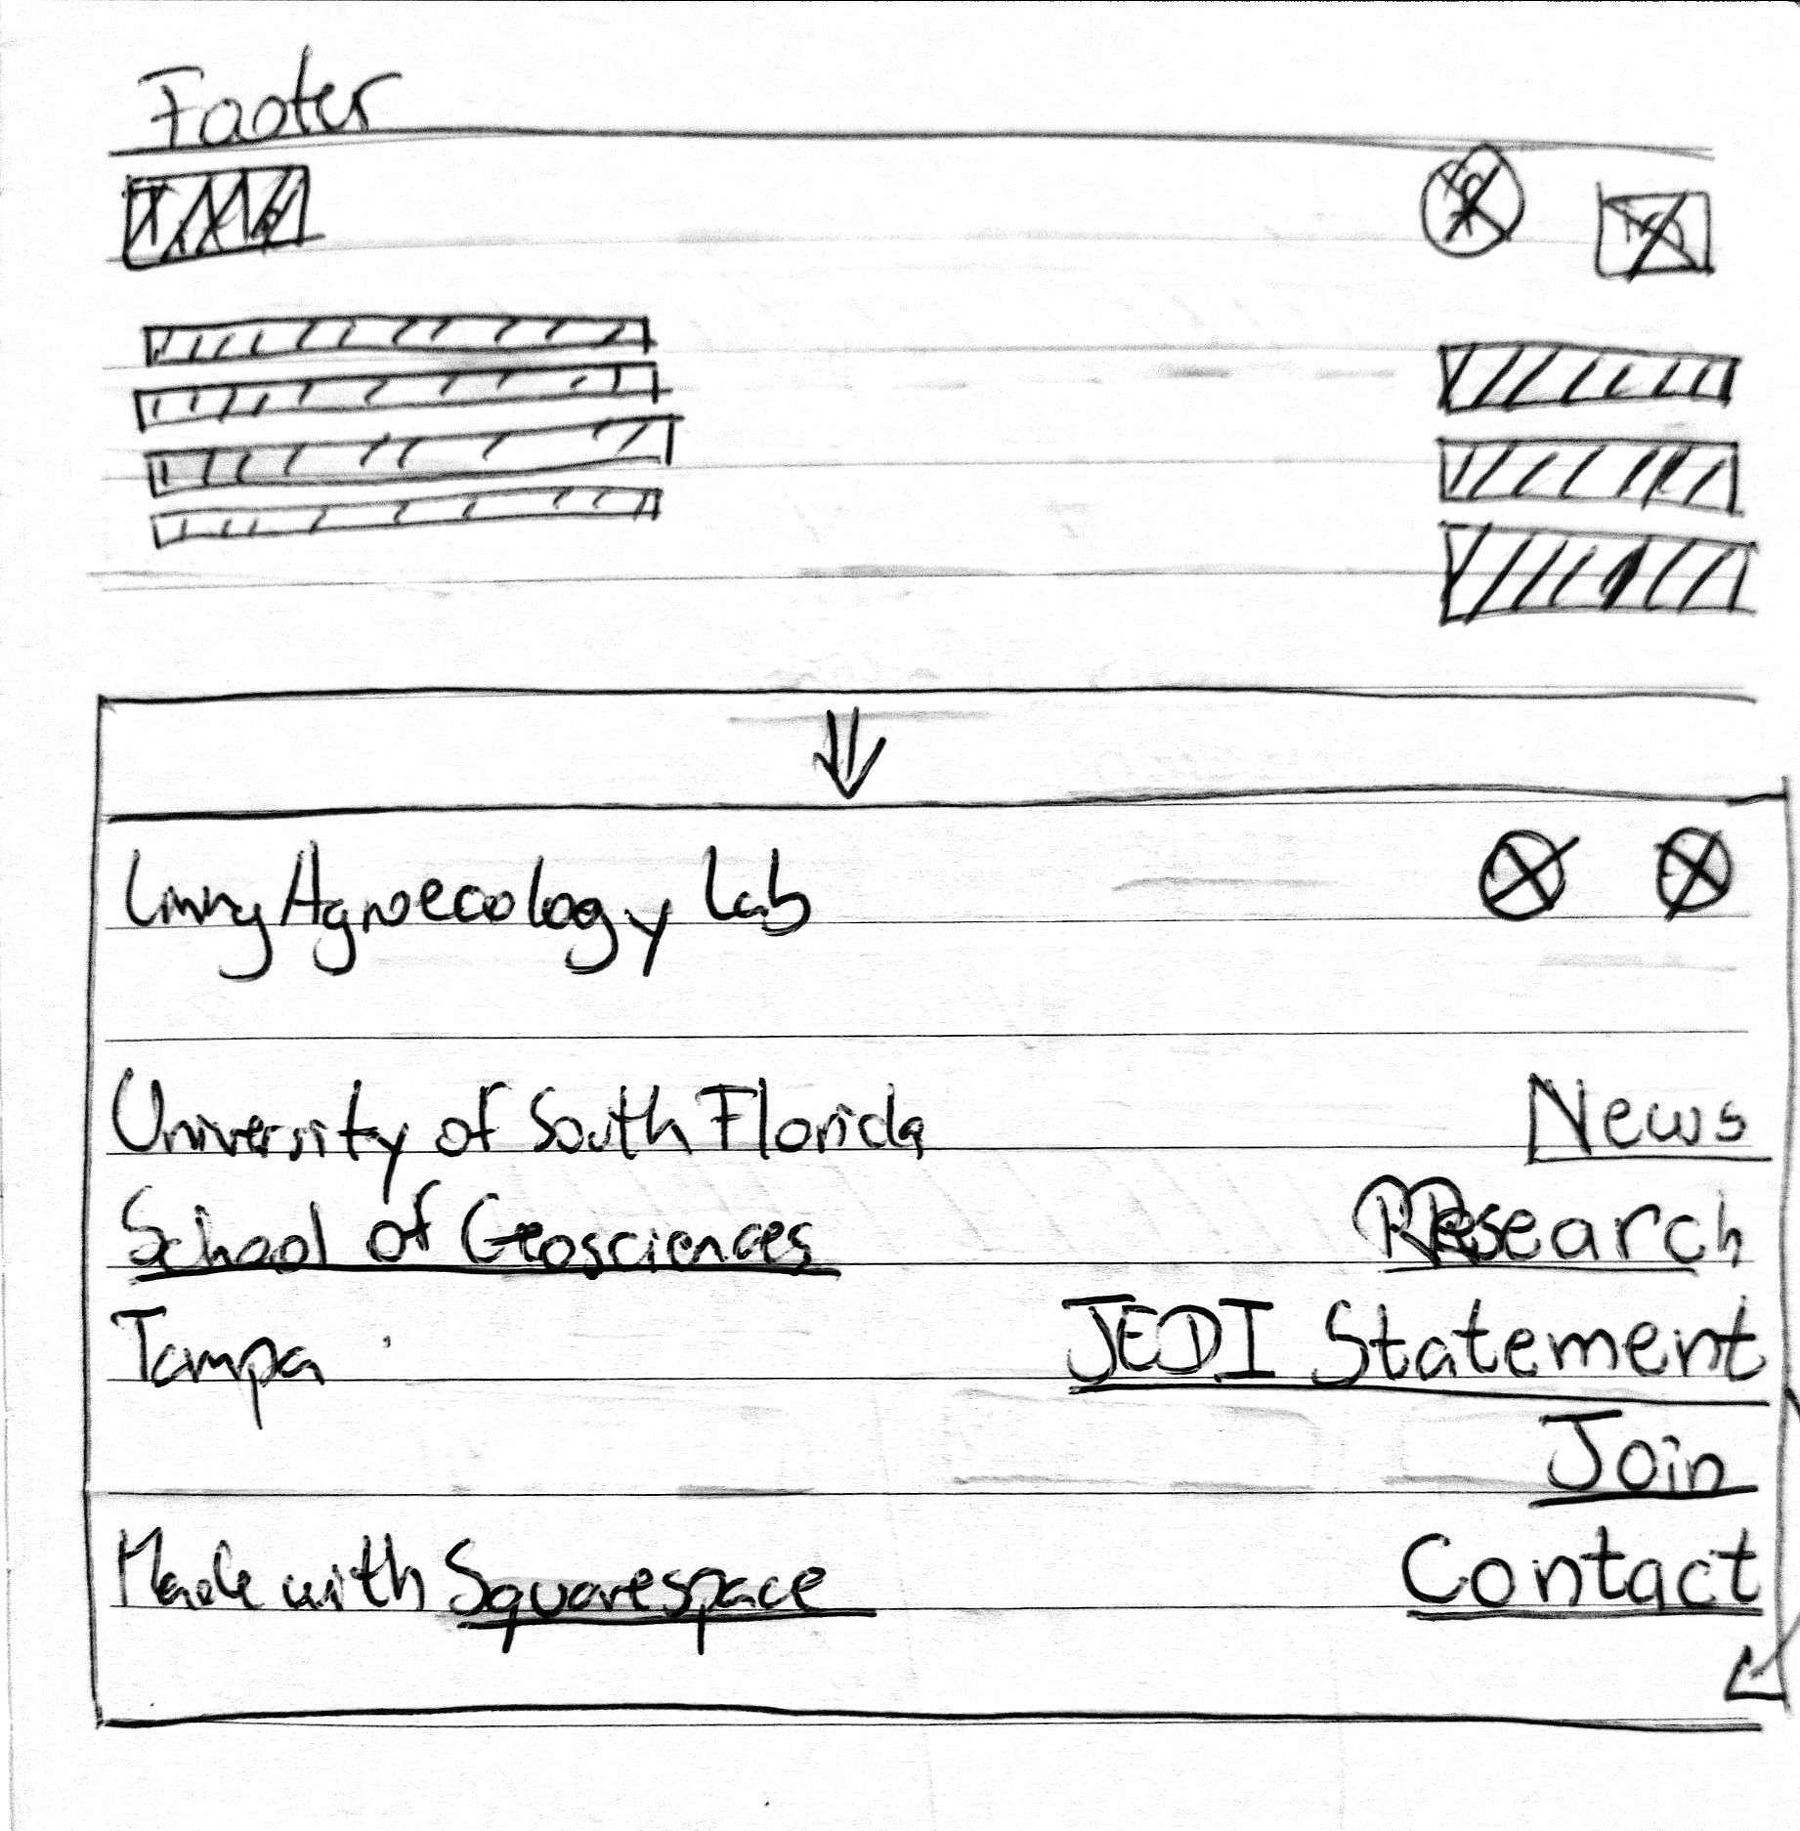 Footer
Living Agroecology Lab
University of South Florida
News
School of Geosciences
Research
Tampa
JEDI Statement
Join
Made with Squarespace
Contact